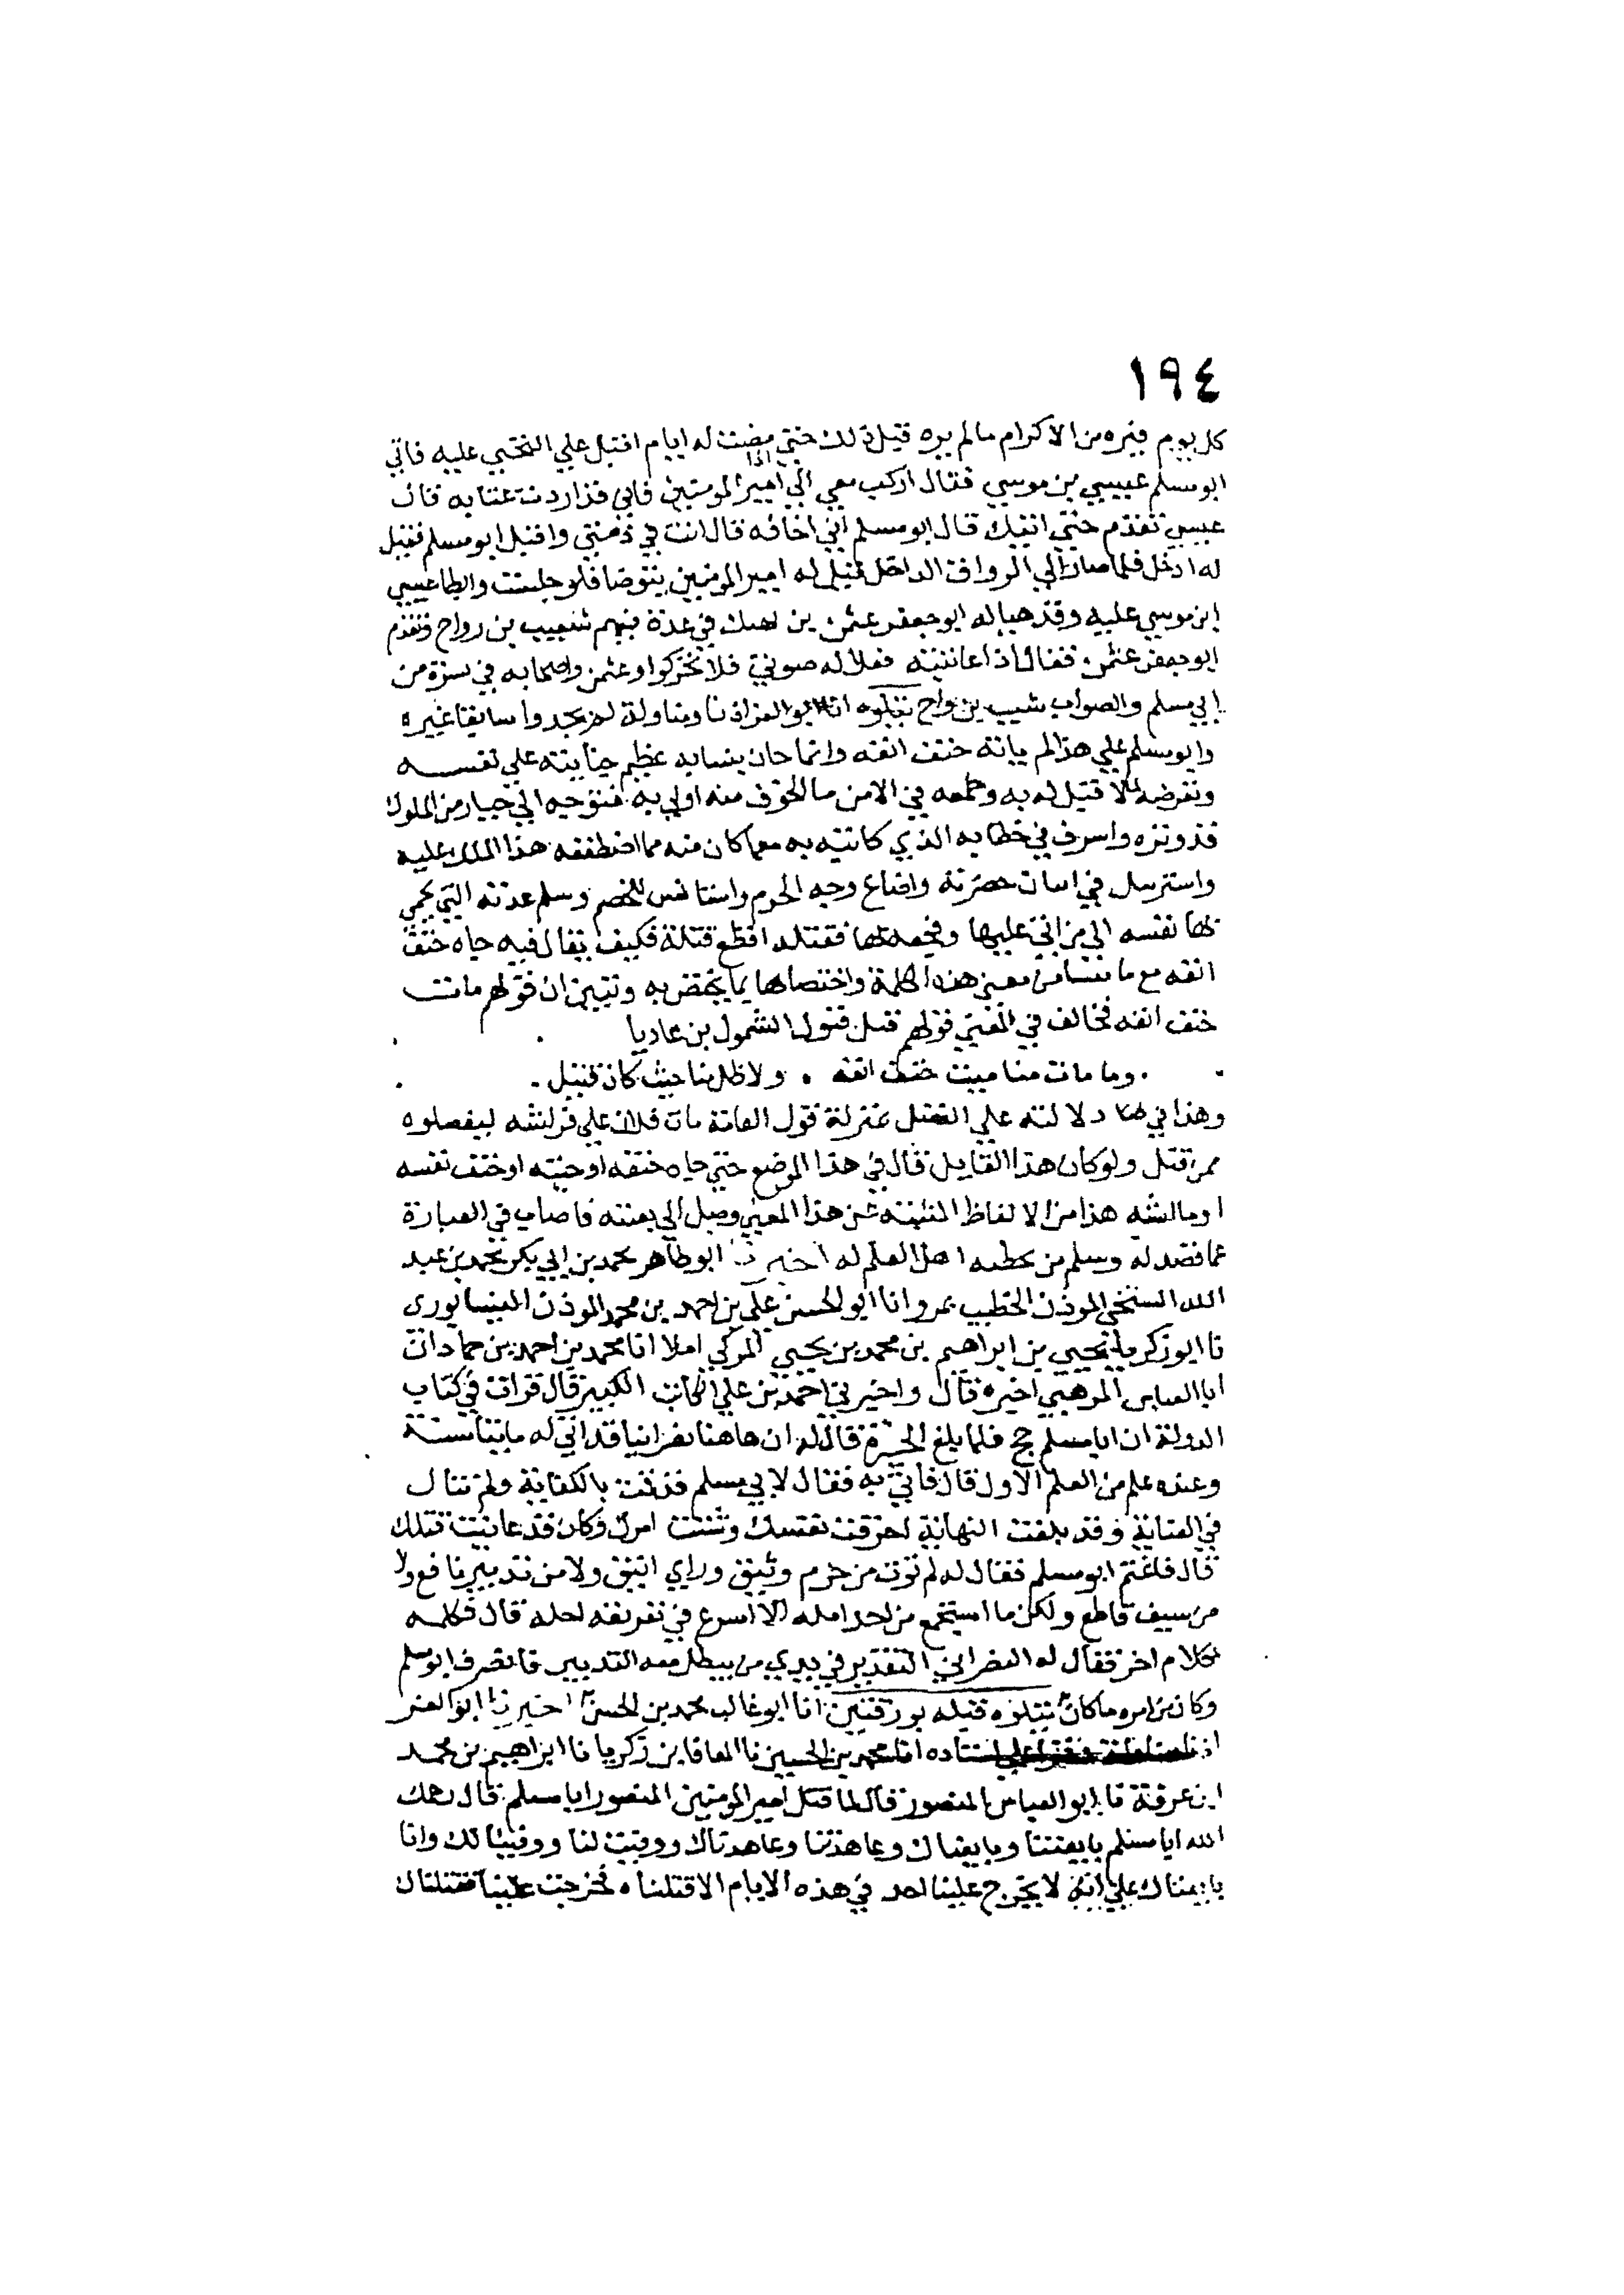 ١٩٤
كل يوم فيره من الاكرام ما لم يره قبل ذلك حتى مضت له ايام اقبل علي التجني عليه فاتي
ابو مسلم عيسي بن موسي فقال اركب معي الي امير المومنين فاني قد اردت عتابه قال
عيسي تقدم حتي اتيك قال ابو مسلم اني اخافه قال انت في ذمتي واقبل ابو مسلم فقيل
له ادخل فلما صار الي الرواق الداخل قيل له امير المومنين يتوضا فلو جلست وابطا عيسي
ابن موسي عليه وقد هيا له ابو جعفر عثمن بن نهيك في عدة فيهم شبيب بن رواح وتقدم
ابو جعفر عثمن فقال اذا عاتبته فعلا له صوتي فلا تحركوا وعثمن واصحابه في سترة من
ابي مسلم والصواب شبيب بن واج نتلوه انا ابو العز اذنا ومناولة لم يجدوا سابقا غيره
وابو مسلم علي هذا لم ياته حتف انفه وانما حان بنسابه عظيم جنايته علي نفسه
وتعرضه لما لا قبل له به وطمعه في الامن ما الخوف منه اولي به فتوجه الي جبار من الملوك
قد وتره واسرف في خطابه الذي كاتبه به مع ما كان منه مما اضطغنه هذا الملك عليه
واسترسل في اتيان حضرته واضاع وجه الحزم واستانس للخصم وسلم عدته التي يحمي
بها نفسه الي من اتي عليها وفجعه بها فقتله افظع قتلة فكيف يقال فيه جاه حتف
انفه مع ما من معني هذه الكلمة واختصاصها بما يختص به وتبين ان قولهم مات
حتف انفه مخالف في المعني قولهم قتل قول السمول بن عاديا
وما مات منا ميت حتف انفه . ولا طل منا حيث كان قتيل .
وهذا في دلالته علي القتل بمنزلة قول العامة مات فلان علي فراشه ليفصلوه
ممن قتل ولو كان هذا القايل قال في هذا الموضع حتي جاه حتفه او حينه او حتف نفسه
او ما اشبه هذا من الالفاظ المنبئة عن هذا المعني وصل الي بغيته فاصاب في العبارة
عما قصد له وسلم من اهل العلم له اخبرنا ابو طاهر محمد بن ابي بكر محمد بن عبد
الله السنجي الموذن الخطيب بمرو انا ابو الحسن علي بن احمد بن محمد الموذن النيسابوري
نا ابو زكريا يحيي بن ابراهيم بن محمد بن يحيي المزكي املا انا محمد بن احمد بن حماد ان
ابا العباس المرهبي اخبره قال واخبرني احمد بن علي الكاتب الكبير قال قرات في كتاب
الدولة ان ابا مسلم حج فلما بلغ الحيرة قال له ان هاهنا نصرانيا قد اتي له مايتا سنة
وعنده علم من العلم الاول قال فاتي به فقال لابي مسلم قد قمت بالكفاية ولم تتال
في العناية وقد بلغت النهاية احرقت نفسك وشتت امرك وكان قد عاينت قتلك
قال فاغتم ابو مسلم فقال له لم توت من حزم وثيق وراي انيق ولا من تدبير نافع ولا
من سيف قاطع ولكن ما استجمع من احد امله الا اسرع في تفريقه اجله قال فكلمه
بكلام اخر فقال له النصراني التقدير في يدي من يبطل معه التدبير فانصرف ابو مسلم
وكان من امره ما كان نتلوه قبله بورقتين انا ابو غالب محمد بن الحسن اخبرنا ابو العز
اذنا ومناولة وقرا علي اسناده انا محمد بن الحسين نا المعافا بن زكريا نا ابراهيم بن محمد
ابن عرفة نا ابو العباس المنصور قال لما قتل امير المومنين المنصور ابا مسلم قال رحمك
الله ابا مسلم بايعتنا وبايعناك وعاهدتنا وعاهدناك ووفيت لنا ووفينا لك وانا
بايعناك علي انه لا يخرج علينا احد في هذه الايام الا قتلناه فخرجت علينا فقتلناك